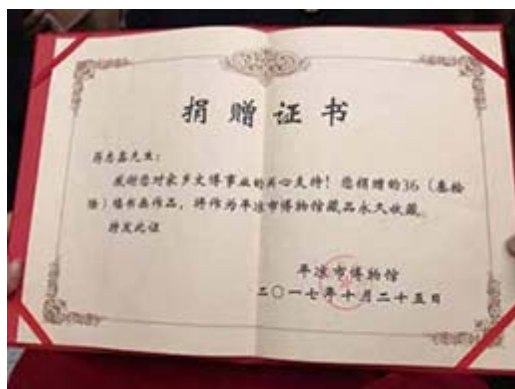 捐赠证书
先生：
感谢您对家乡文博事业的关心支持！您捐赠的36（叁拾
陆）幅书画作品，将作为平凉市博物馆藏品永久收藏。
特发此证
平凉市博物馆
二〇一七年十月二十五日